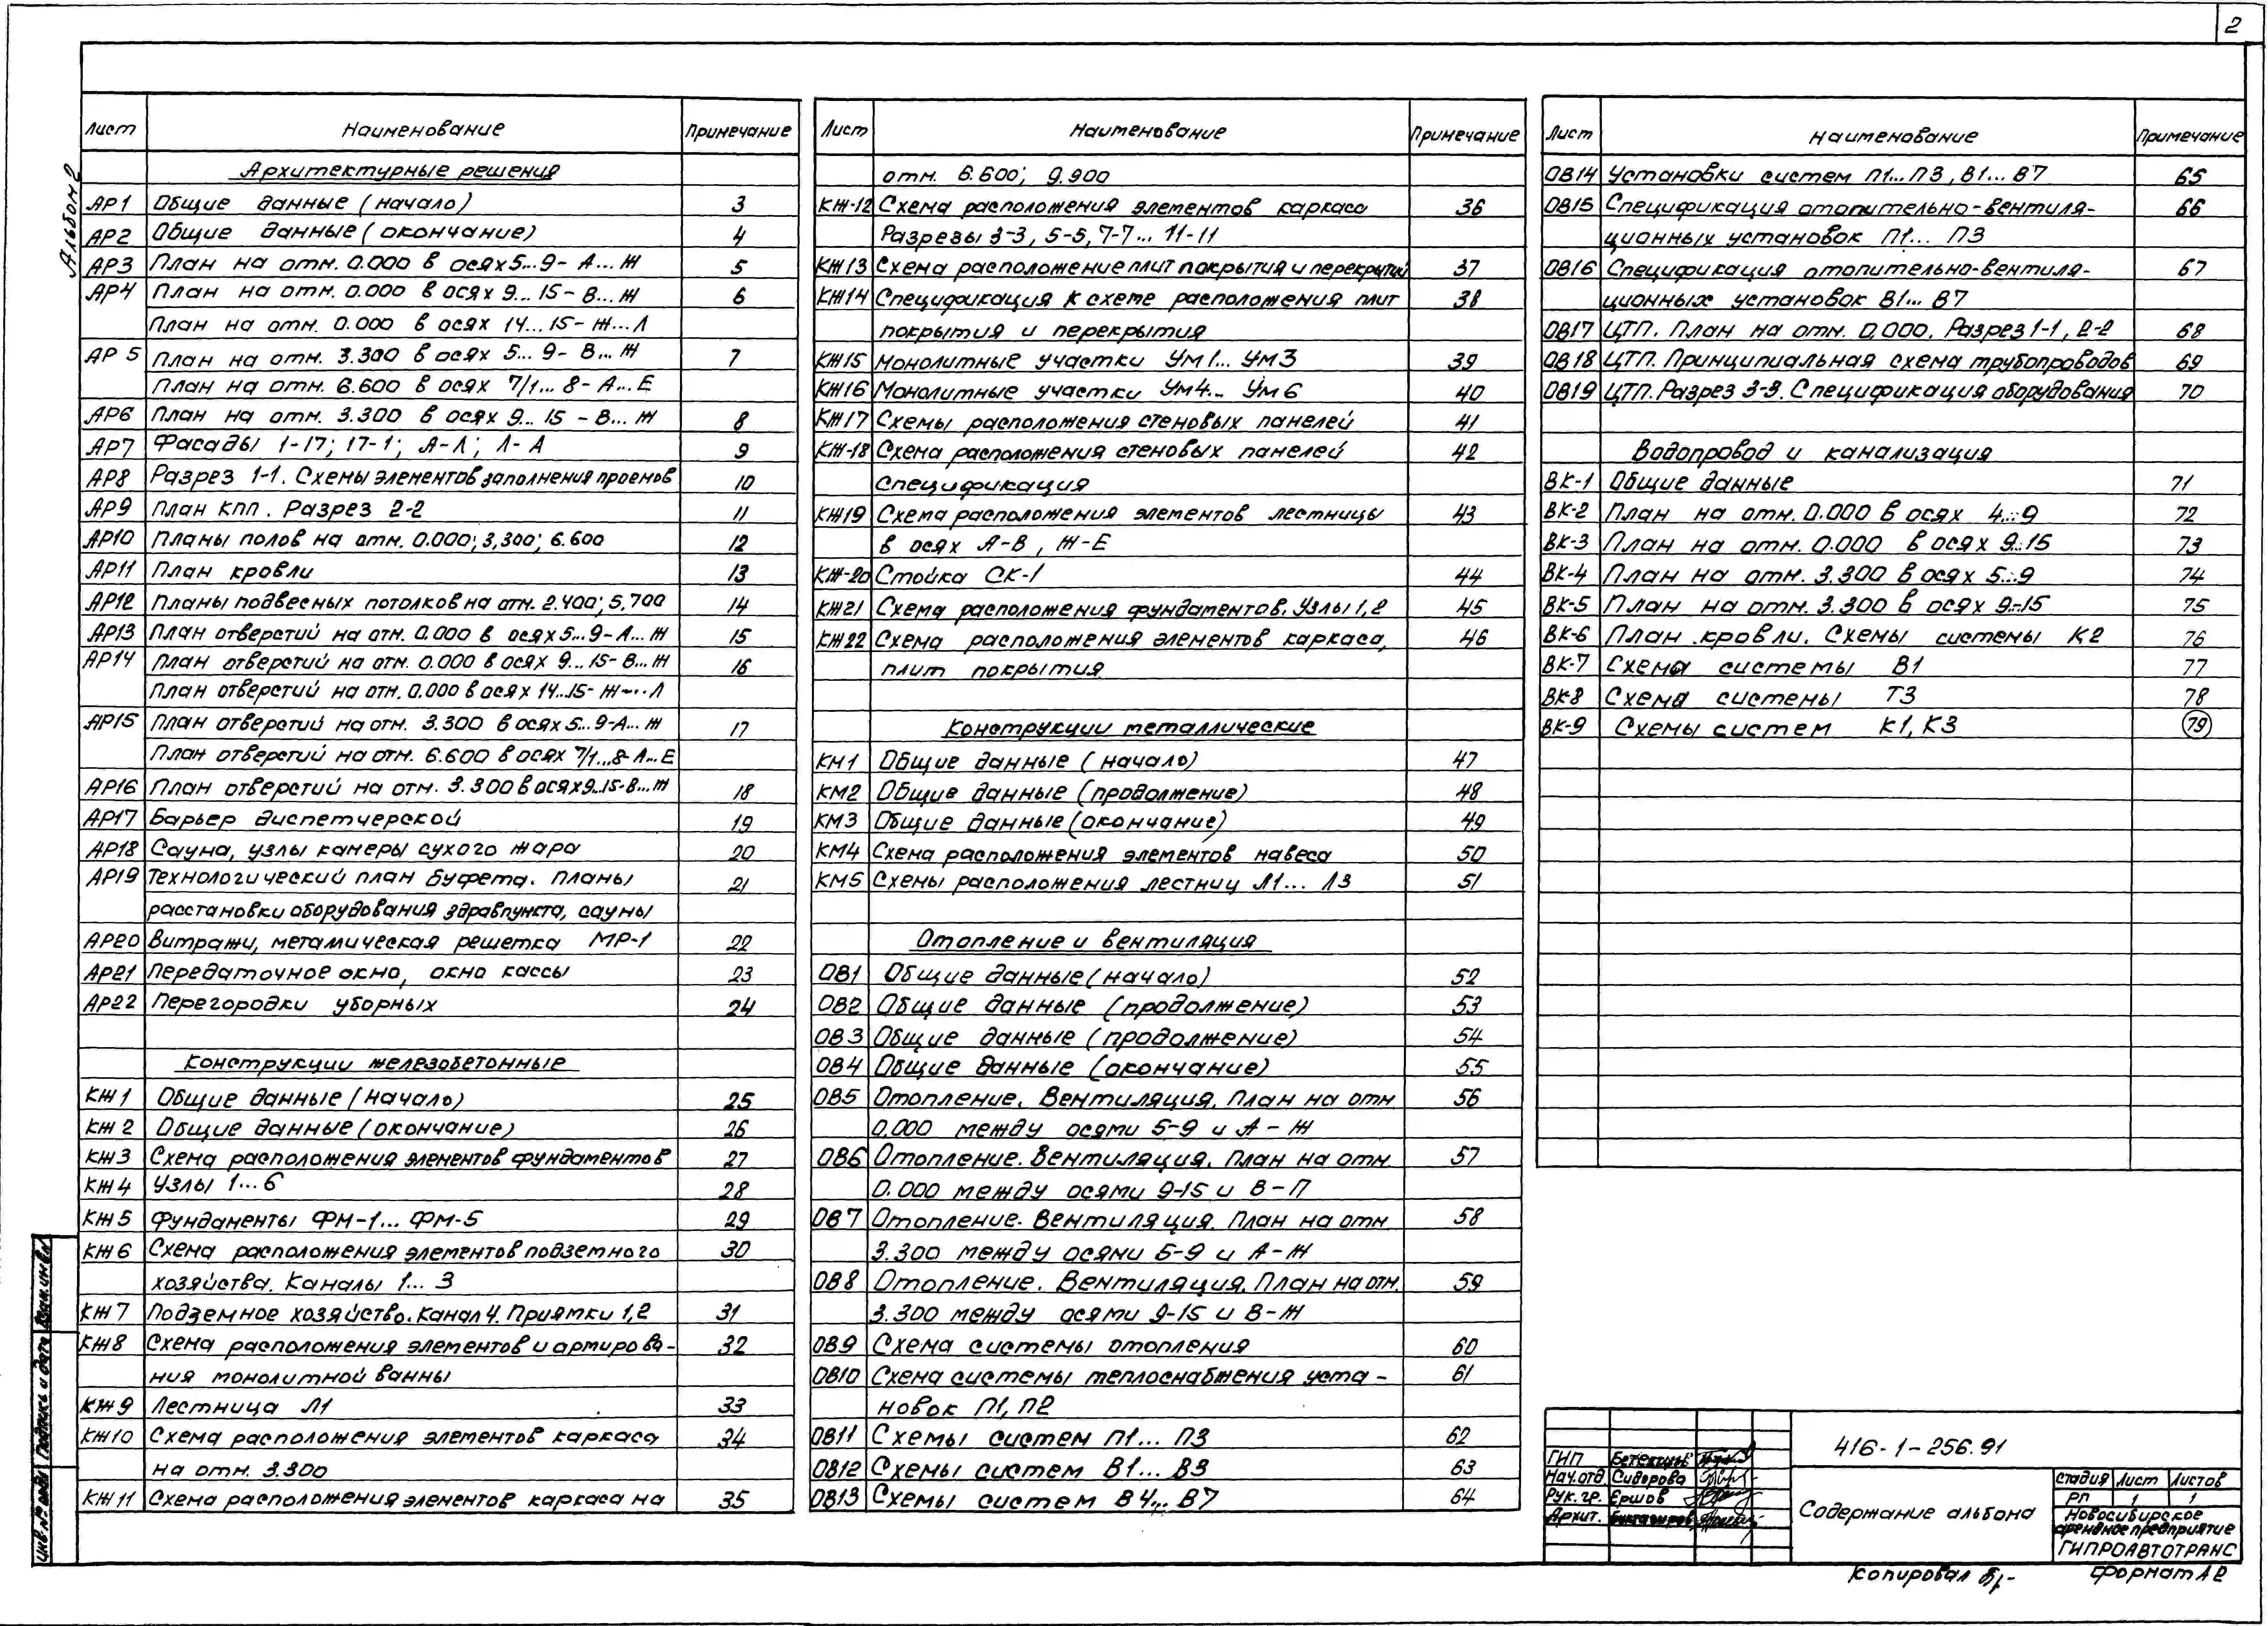 2
Альбом 2
Лист Наименование Примечание
Архитектурные решения
АР1 Общие данные (начало) 3
АР2 Общие данные (окончание) 4
АР3 План на отм. 0.000 в осях 5...9- А...Ж 5
АР4 План на отм. 0.000 в осях 9...15- В...Ж 6
План на отм. 0.000 в осях 14...15- Ж...Л
АР 5 План на отм. 3.300 в осях 5...9- В...Ж 7
План на отм. 6.600 в осях 7/1...8- А...Е
АР6 План на отм. 3.300 в осях 9...15 - В...Ж 8
АР7 Фасады 1-17; 17-1; А-Л; Л-А 9
АР8 Разрез 1-1. Схемы элементов заполнения проемов 10
АР9 План КПП. Разрез 2-2 11
АР10 Планы полов на отм. 0.000; 3,300; 6.600 12
АР11 План кровли 13
АР12 Планы подвесных потолков на отм. 2.400; 5,700 14
АР13 План отверстий на отм. 0.000 в осях 5...9-А...Ж 15
АР14 План отверстий на отм. 0.000 в осях 9...15-В...Ж 16
План отверстий на отм. 0.000 в осях 14...15- Ж...Л
АР15 План отверстий на отм. 3.300 в осях 5...9-А...Ж 17
План отверстий на отм. 6.600 в осях 7/1...8-А...Е
АР16 План отверстий на отм. 3.300 в осях 9...15-В...Ж 18
АР17 Барьер диспетчерской 19
АР18 Сауна, узлы камеры сухого жара 20
АР19 Технологический план буфета. Планы 21
расстановки оборудования здравпункта, сауны
АР20 Витражи, металлическая решетка МР-1 22
АР21 Передаточное окно, окно кассы 23
АР22 Перегородки уборных 24
Конструкции железобетонные
КЖ1 Общие данные (начало) 25
КЖ 2 Общие данные (окончание) 26
КЖ3 Схема расположения элементов фундаментов 27
КЖ4 Узлы 1...6 28
КЖ5 Фундаменты ФМ-1... ФМ-5 29
КЖ6 Схема расположения элементов подземного 30
хозяйства. Каналы 1... 3
КЖ7 Подземное хозяйство. Канал 4. Приямки 1,2 31
КЖ8 Схема расположения элементов и армирова- 32
ния монолитной ванны
КЖ9 Лестница Л1 33
КЖ10 Схема расположения элементов каркаса 34
на отм. 3.300
КЖ11 Схема расположения элементов каркаса на 35
Лист Наименование Примечание
отм. 6.600; 9.900
КЖ-12 Схема расположения элементов каркаса 36
Разрезы 3-3, 5-5, 7-7... 11-11
КЖ13 Схема расположение плит покрытия и перекрытий 37
КЖ14 Спецификация к схеме расположения плит 38
покрытия и перекрытия
КЖ15 Монолитные участки Ум1... Ум3 39
КЖ16 Монолитные участки Ум4... Ум6 40
КЖ17 Схемы расположения стеновых панелей 41
КЖ-18 Схема расположения стеновых панелей 42
спецификация
КЖ19 Схема расположения элементов лестницы 43
в осях А-В, Ж-Е
КЖ-20 Стойка СК-1 44
КЖ21 Схема расположения фундаментов. Узлы 1,2 45
КЖ22 Схема расположения элементов каркаса, 46
плит покрытия
Конструкции металлические
КМ1 Общие данные (начало) 47
КМ2 Общие данные (продолжение) 48
КМ3 Общие данные (окончание) 49
КМ4 Схема расположения элементов навеса 50
КМ5 Схемы расположения лестниц Л1... Л3 51
Отопление и вентиляция
ОВ1 Общие данные (начало) 52
ОВ2 Общие данные (продолжение) 53
ОВ3 Общие данные (продолжение) 54
ОВ4 Общие данные (окончание) 55
ОВ5 Отопление. Вентиляция. План на отм 56
0.000 между осями 5-9 и А-Ж
ОВ6 Отопление. Вентиляция. План на отм 57
0.000 между осями 9-15 и В-П
ОВ7 Отопление. Вентиляция. План на отм 58
3.300 между осями Б-9 и А-Ж
ОВ8 Отопление. Вентиляция. План на отм. 59
3.300 между осями 9-15 и В-Ж
ОВ9 Схема системы отопления 60
ОВ10 Схема системы теплоснабжения уста- 61
новок П1, П2
ОВ11 Схемы систем П1... П3 62
ОВ12 Схемы систем В1... В3 63
ОВ13 Схемы систем В4... В7 64
Лист Наименование Примечание
ОВ14 Установки систем П1... П3, В1... В7 65
ОВ15 Спецификация отопительно-вентиля- 66
ционных установок П1... П3
ОВ16 Спецификация отопительно-вентиля- 67
ционных установок В1... В7
ОВ17 ЦТП. План на отм. 0,000. Разрез 1-1, 2-2 68
ОВ18 ЦТП. Принципиальная схема трубопроводов 69
ОВ19 ЦТП. Разрез 3-3. Спецификация оборудования 70
Водопровод и канализация
ВК-1 Общие данные 71
ВК-2 План на отм. 0.000 в осях 4...9 72
ВК-3 План на отм. 0.000 в осях 9...15 73
ВК-4 План на отм. 3.300 в осях 5...9 74
ВК-5 План на отм. 3.300 в осях 9...15 75
ВК-6 План кровли. Схемы системы К2 76
ВК-7 Схема системы В1 77
ВК-8 Схема системы Т3 78
ВК-9 Схемы систем К1, К3 79
416-1-256.91
ГИП
Нач.отд Сидорова
Рук.гр. Ершов
Архит.
Содержание альбома
Стадия Лист Листов
РП 1 1
Новосибирское
арендное предприятие
ГИПРОАВТОТРАНС
Копировал
Формат А2
Инв.№ подл Подпись и дата Взам.инв.№